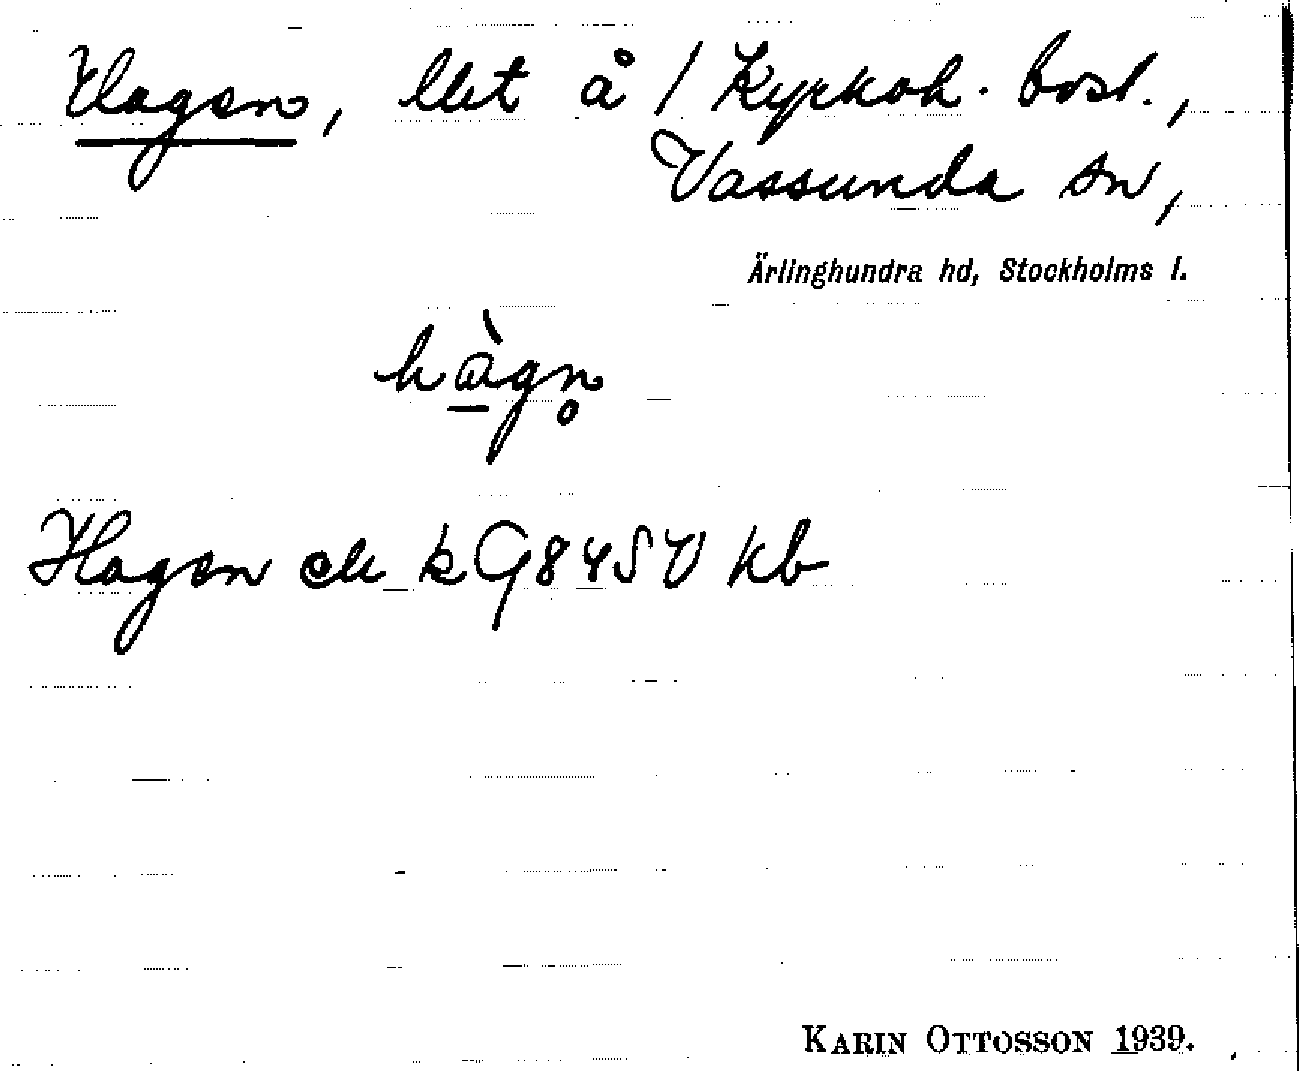 Hagen, lht å / Kyrkoh. bost.,
Vassunda sn,
Ärlinghundra hd, Stockholms l.
hàgn̥
Hagen ek k G845V Kb
KARIN OTTOSSON 1939.